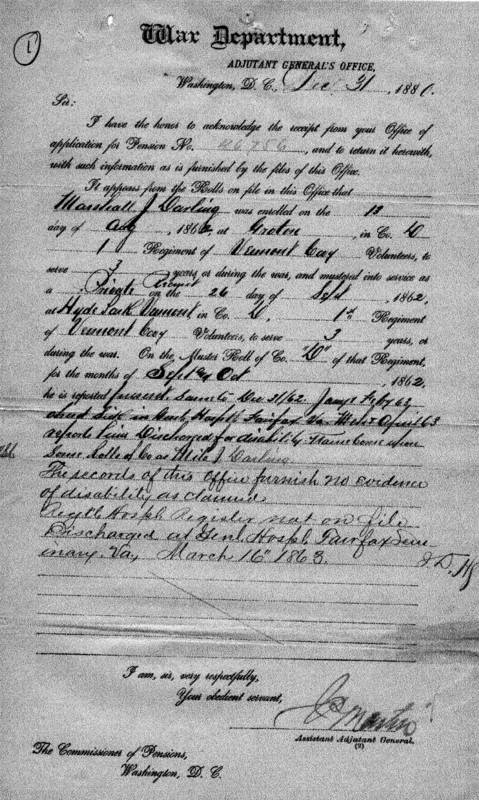 1
War Department,
ADJUTANT GENERAL'S OFFICE,
Washington, D. C., Dec 31, 1880.
Sir:
I have the honor to acknowledge the receipt from your Office of
application for Pension No. 46756, and to return it herewith,
with such information as is furnished by the files of this Office.
It appears from the Rolls on file in this Office that
Marshall J Darling was enrolled on the 13
day of Aug, 1862, at Groton, in Co. D
1 Regiment of Vermont Cav Volunteers, to
serve 3 years, or during the war, and mustered into service as
a Private Recruit on the 26 day of Sept, 1862,
at Hyde Park Vermont, in Co. D, 1st Regiment
of Vermont Cav Volunteers, to serve 3 years, or
during the war. On the Muster Roll of Co. "D" of that Regiment,
for the months of Sept & Oct, 1862,
he is reported present Same to Dec 31/62 Jany & Feby 63
absent Sick in Hospt Fairfax Va Mch & April 63
reports him Discharged for disability. Name borne upon
some Rolls of Co as Milo J. Darling
The records of this office furnish no evidence
of disability as claimed
Regtl Hospl Register not on file
Discharged at Genl Hospl Fairfax Sem
inary. Va, March 16" 1863.
I am, sir, very respectfully,
Your obedient servant,
Martin
Assistant Adjutant General.
(2)
The Commissioner of Pensions,
Washington, D. C.